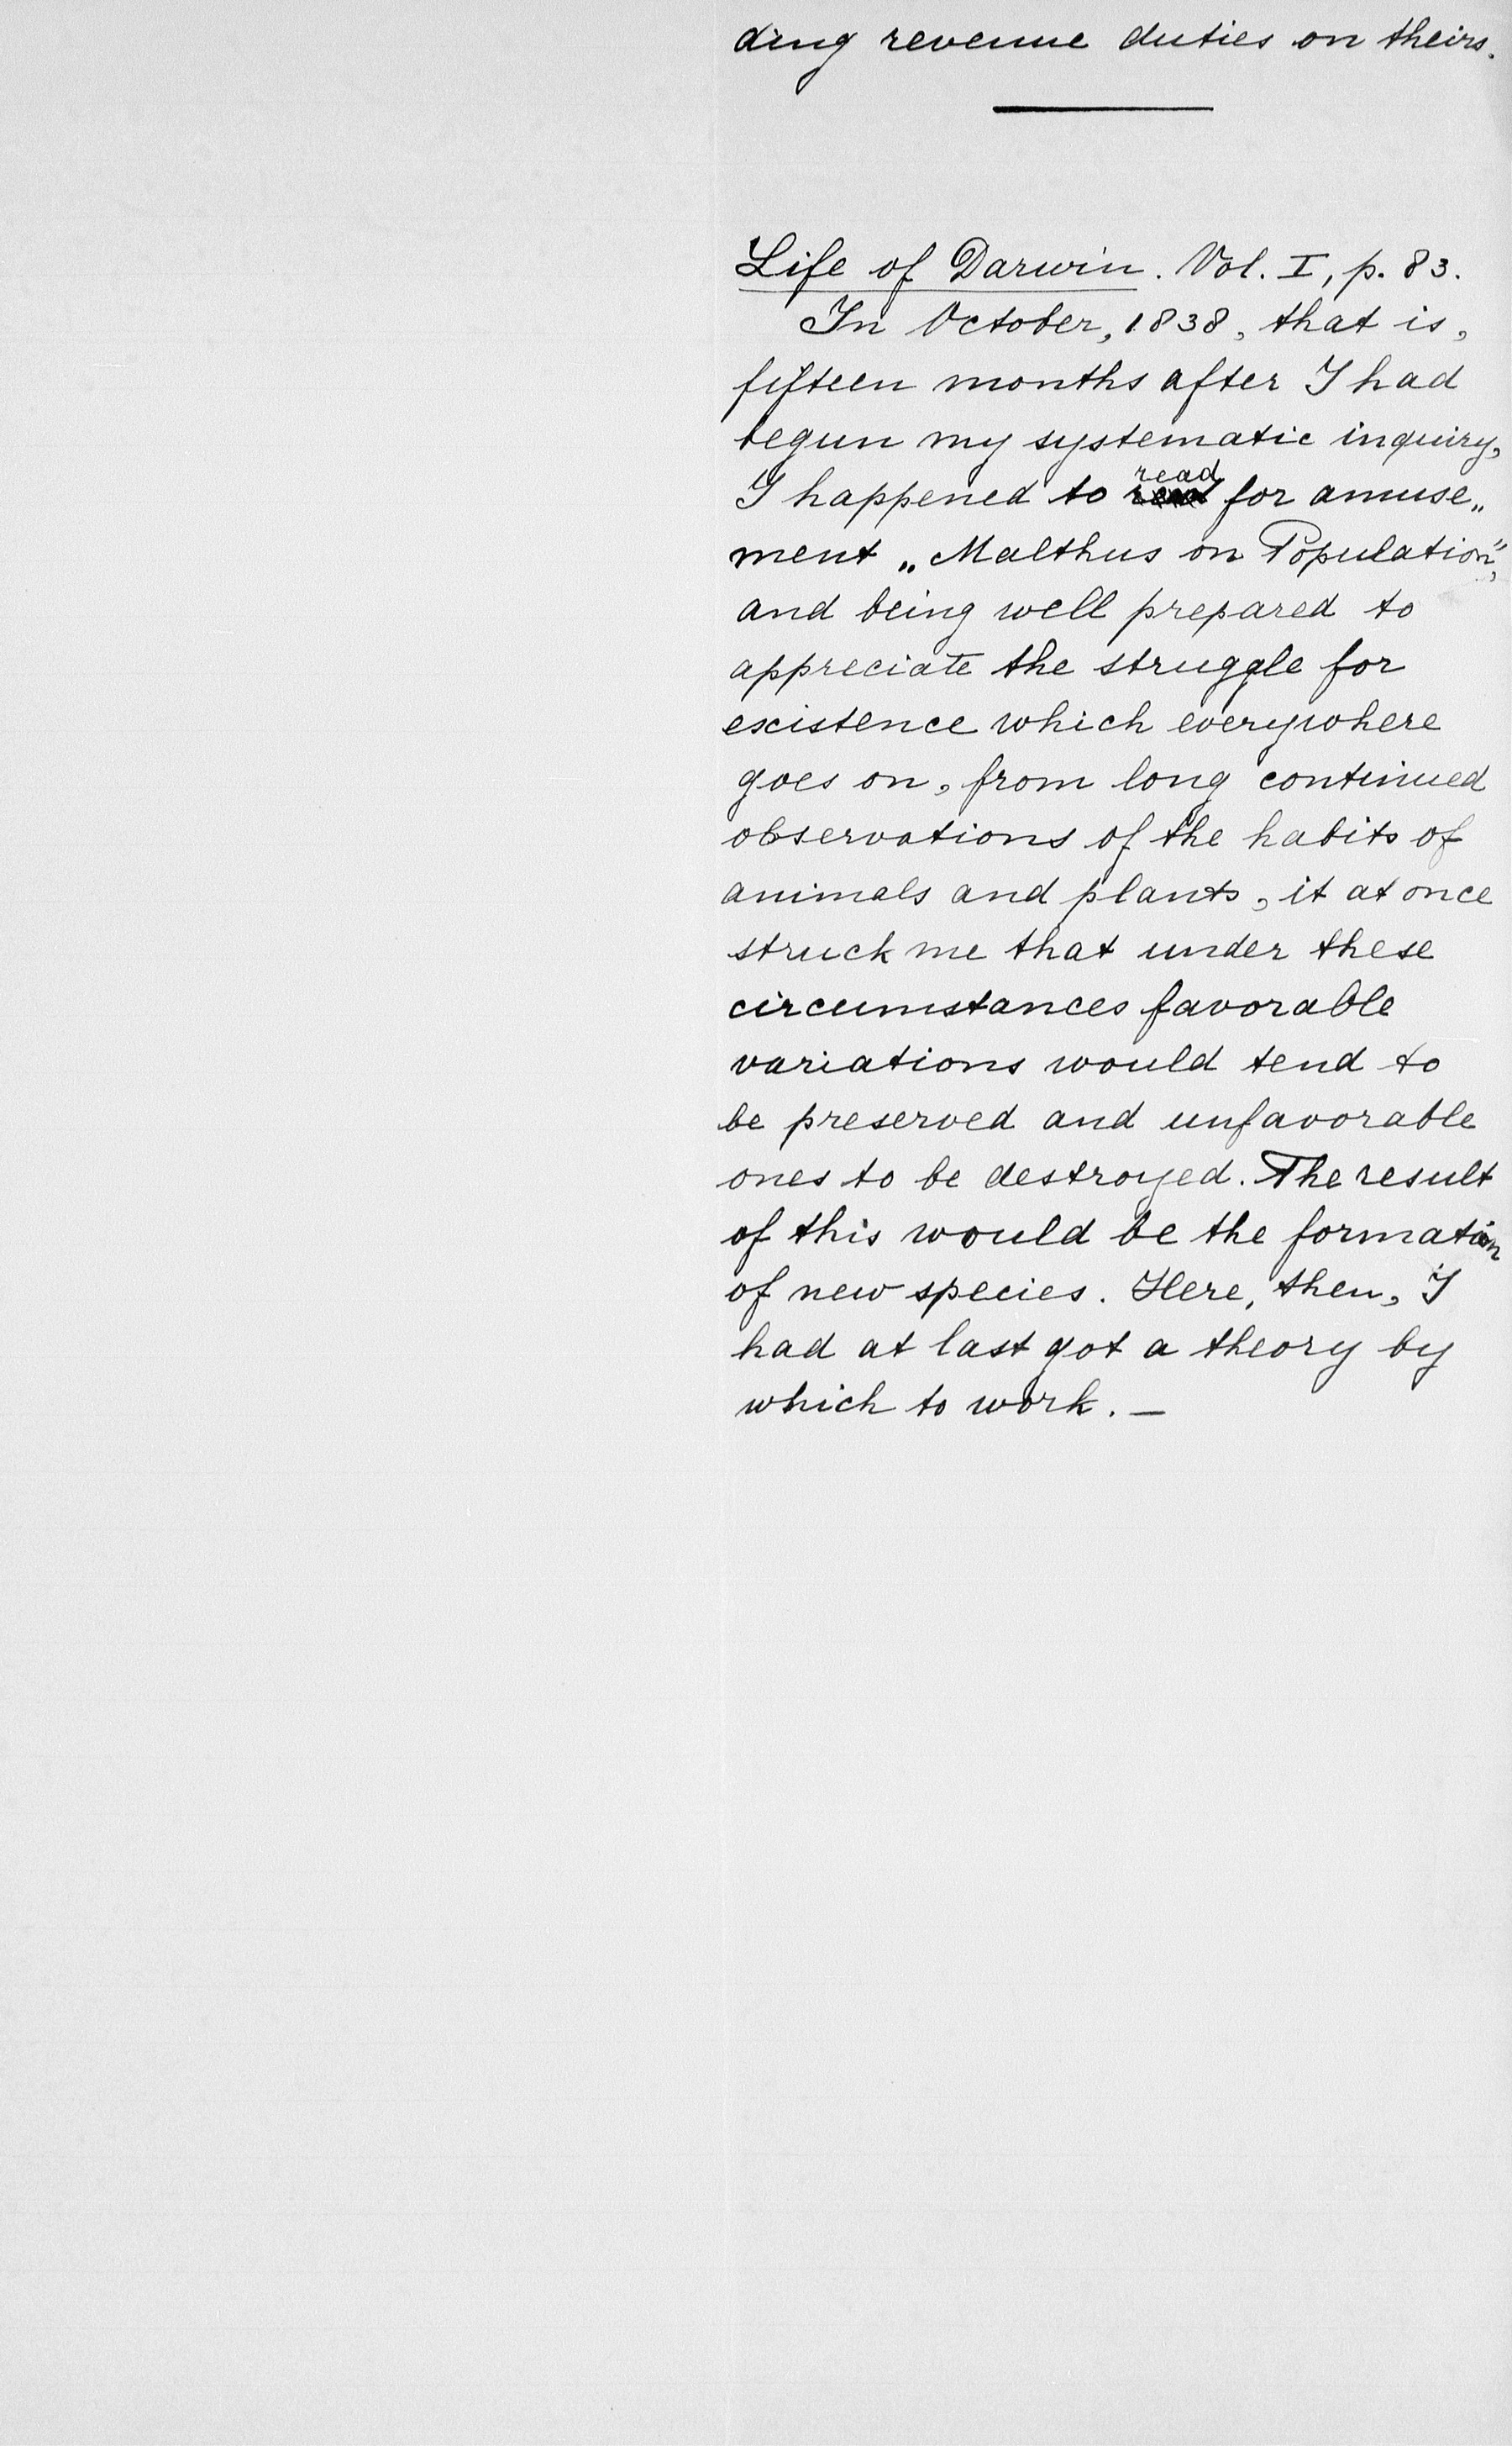 ding revenue duties on theirs.
Life of Darwin. Vol. I, p. 83.
In October, 1838, that is,
fifteen months after I had
begun my systematic inquiry,
read
I happened to read for amuse„
ment „Malthus on Population",
and being well prepared to
appreciate the struggle for
existence which everywhere
goes on, from long continued
observations of the habits of
animals and plants, it at once
struck me that under these
circumstances favorable
variations would tend to
be preserved and unfavorable
ones to be destroyed. The result
of this would be the formation
of new species. Here, then, I
had at last got a theory by
which to work. —